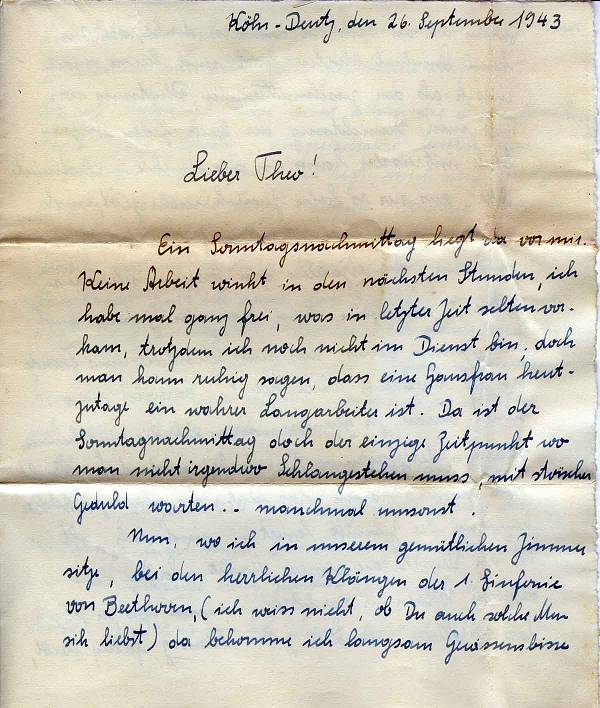 Köln-Deutz, den 26. September 1943
Lieber Theo!
Ein Sonntagsnachmittag liegt da vor mir.
Keine Arbeit winkt in den nächsten Stunden, ich
habe mal ganz frei, was in letzter Zeit selten vor-
kam, trotzdem ich noch nicht im Dienst bin, doch
man kann ruhig sagen, dass eine Hausfrau heut-
zutage ein wahrer Langarbeiter ist. Da ist der
Sonntagnachmittag doch der einzige Zeitpunkt wo
man nicht irgendwo Schlangestehen muss, mit stoischer
Geduld warten .. manchmal umsonst.
Nun, wo ich in unserem gemütlichen Zimmer
sitze, bei den herrlichen Klängen der 1. Sinfonie
von Beethoven, (ich weiss nicht, ob Du auch solche Mu-
sik liebst) da bekomme ich langsam Gewissensbisse